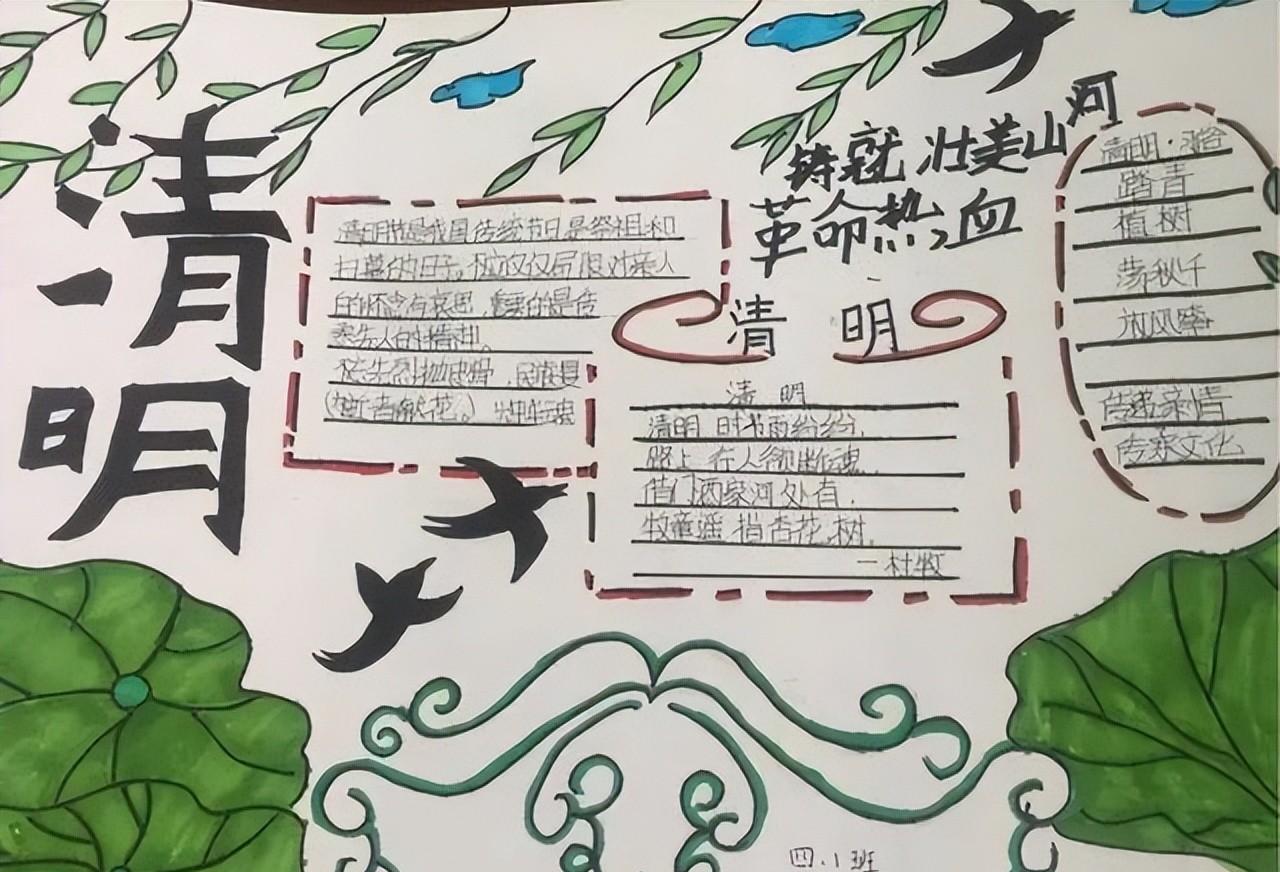 清明
铸就壮美山河
革命热血
清明节是我国传统节日是祭祖和
扫墓的日子。应仅仅局限对亲人
的怀念与哀思，重要的是传
承先人的精神。
先烈抛忠骨，民族复
献花。
清明
清明
清明时节雨纷纷，
路上行人欲断魂。
借门酒家河处有，
牧童遥指杏花树。
一杜牧
清明·习俗
踏青
植树
荡秋千
放风筝
传递亲情
传承文化
四.1班